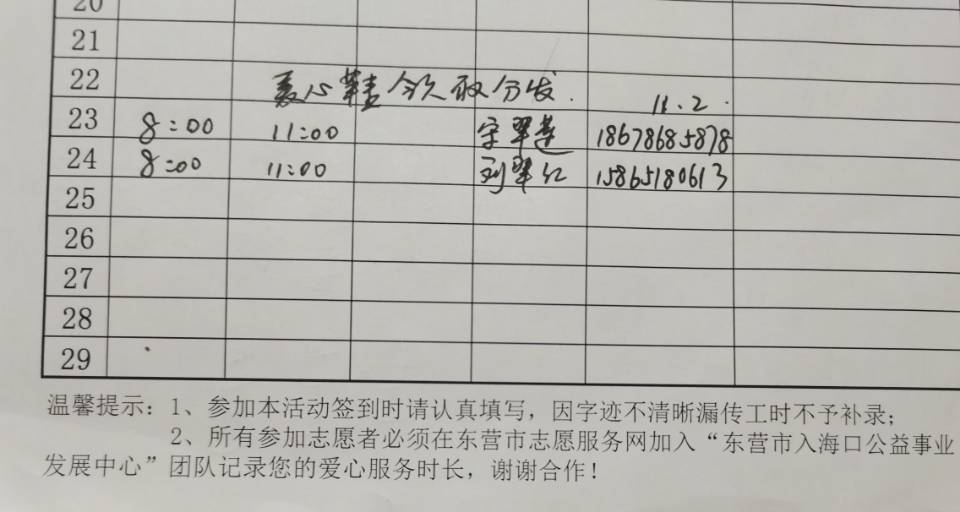 20
21
22 爱心鞋领取分发. 11.2.
23 8:00 11:00 宋翠莲 18678685878
24 8:00 11:00 刘翠红 15865180613
25
26
27
28
29
温馨提示：1、参加本活动签到时请认真填写，因字迹不清晰漏传工时不予补录；
2、所有参加志愿者必须在东营市志愿服务网加入“东营市入海口公益事业
发展中心”团队记录您的爱心服务时长，谢谢合作！